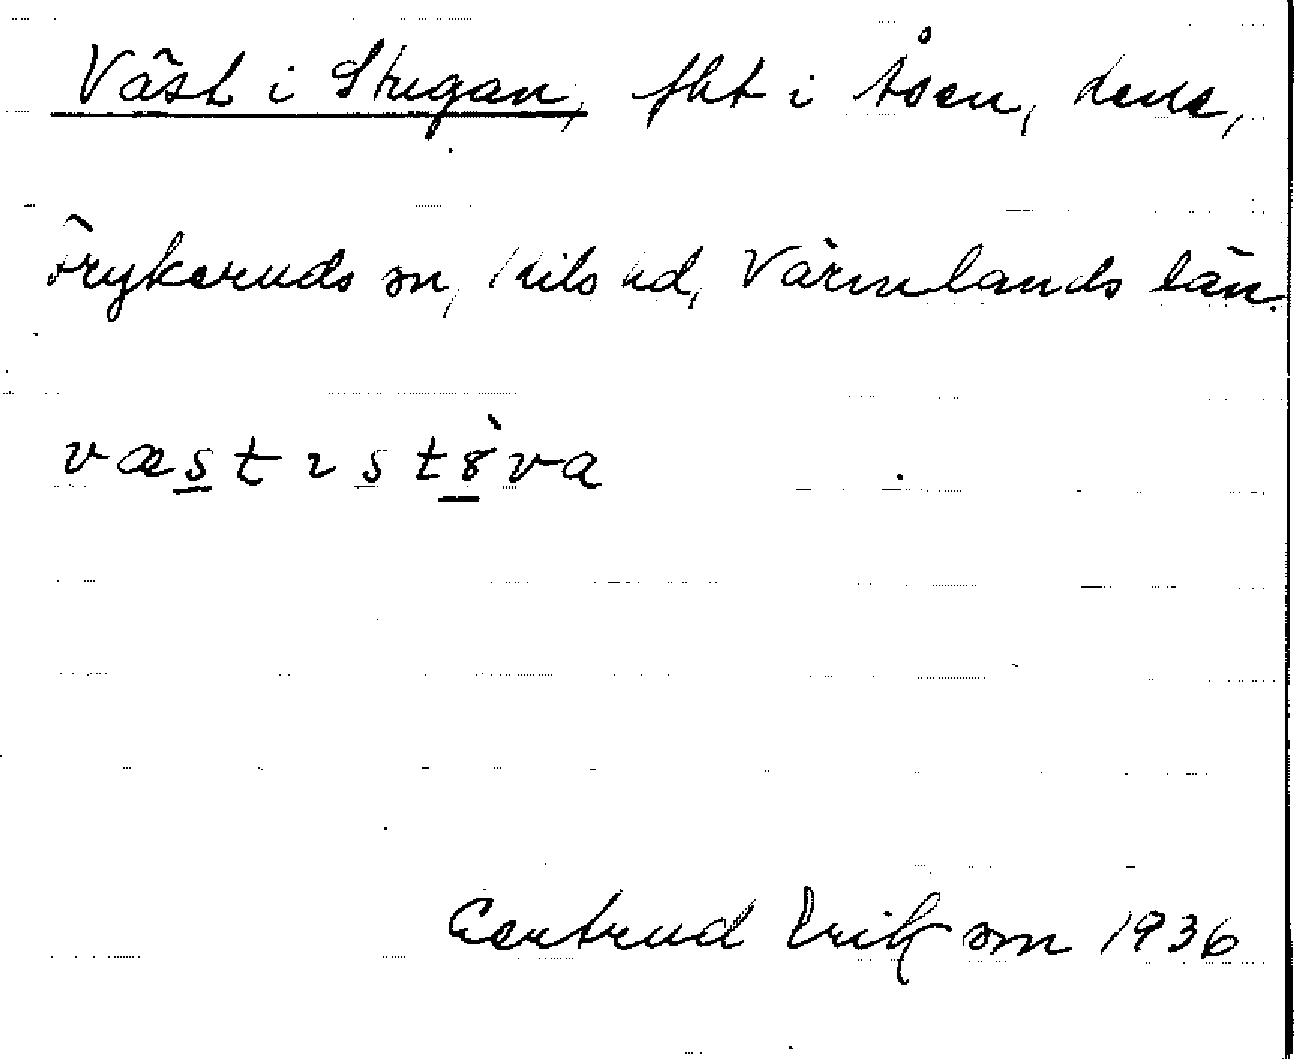 Väst i Stugan, fht i Åsen, dens,
Frykeruds sn, Kils hd, Värmlands län.
væstɩstȣ̀va
Gertrud Eriksson 1936